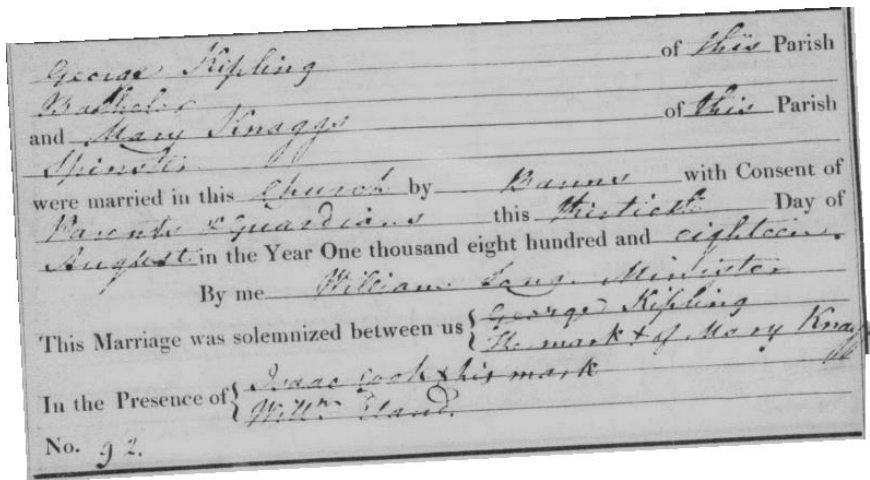 George Kipling of this Parish
Bachelor
and Mary Knaggs of this Parish
Spinster
were married in this Church by Banns with Consent of
Parents & Guardians this thirtieth Day of
August in the Year One thousand eight hundred and eighteen.
By me William Minister
This Marriage was solemnized between us { George Kipling
The mark + of Mary Knaggs
In the Presence of { Isaac Cook + his mark
Willm Eland.
No. 92.